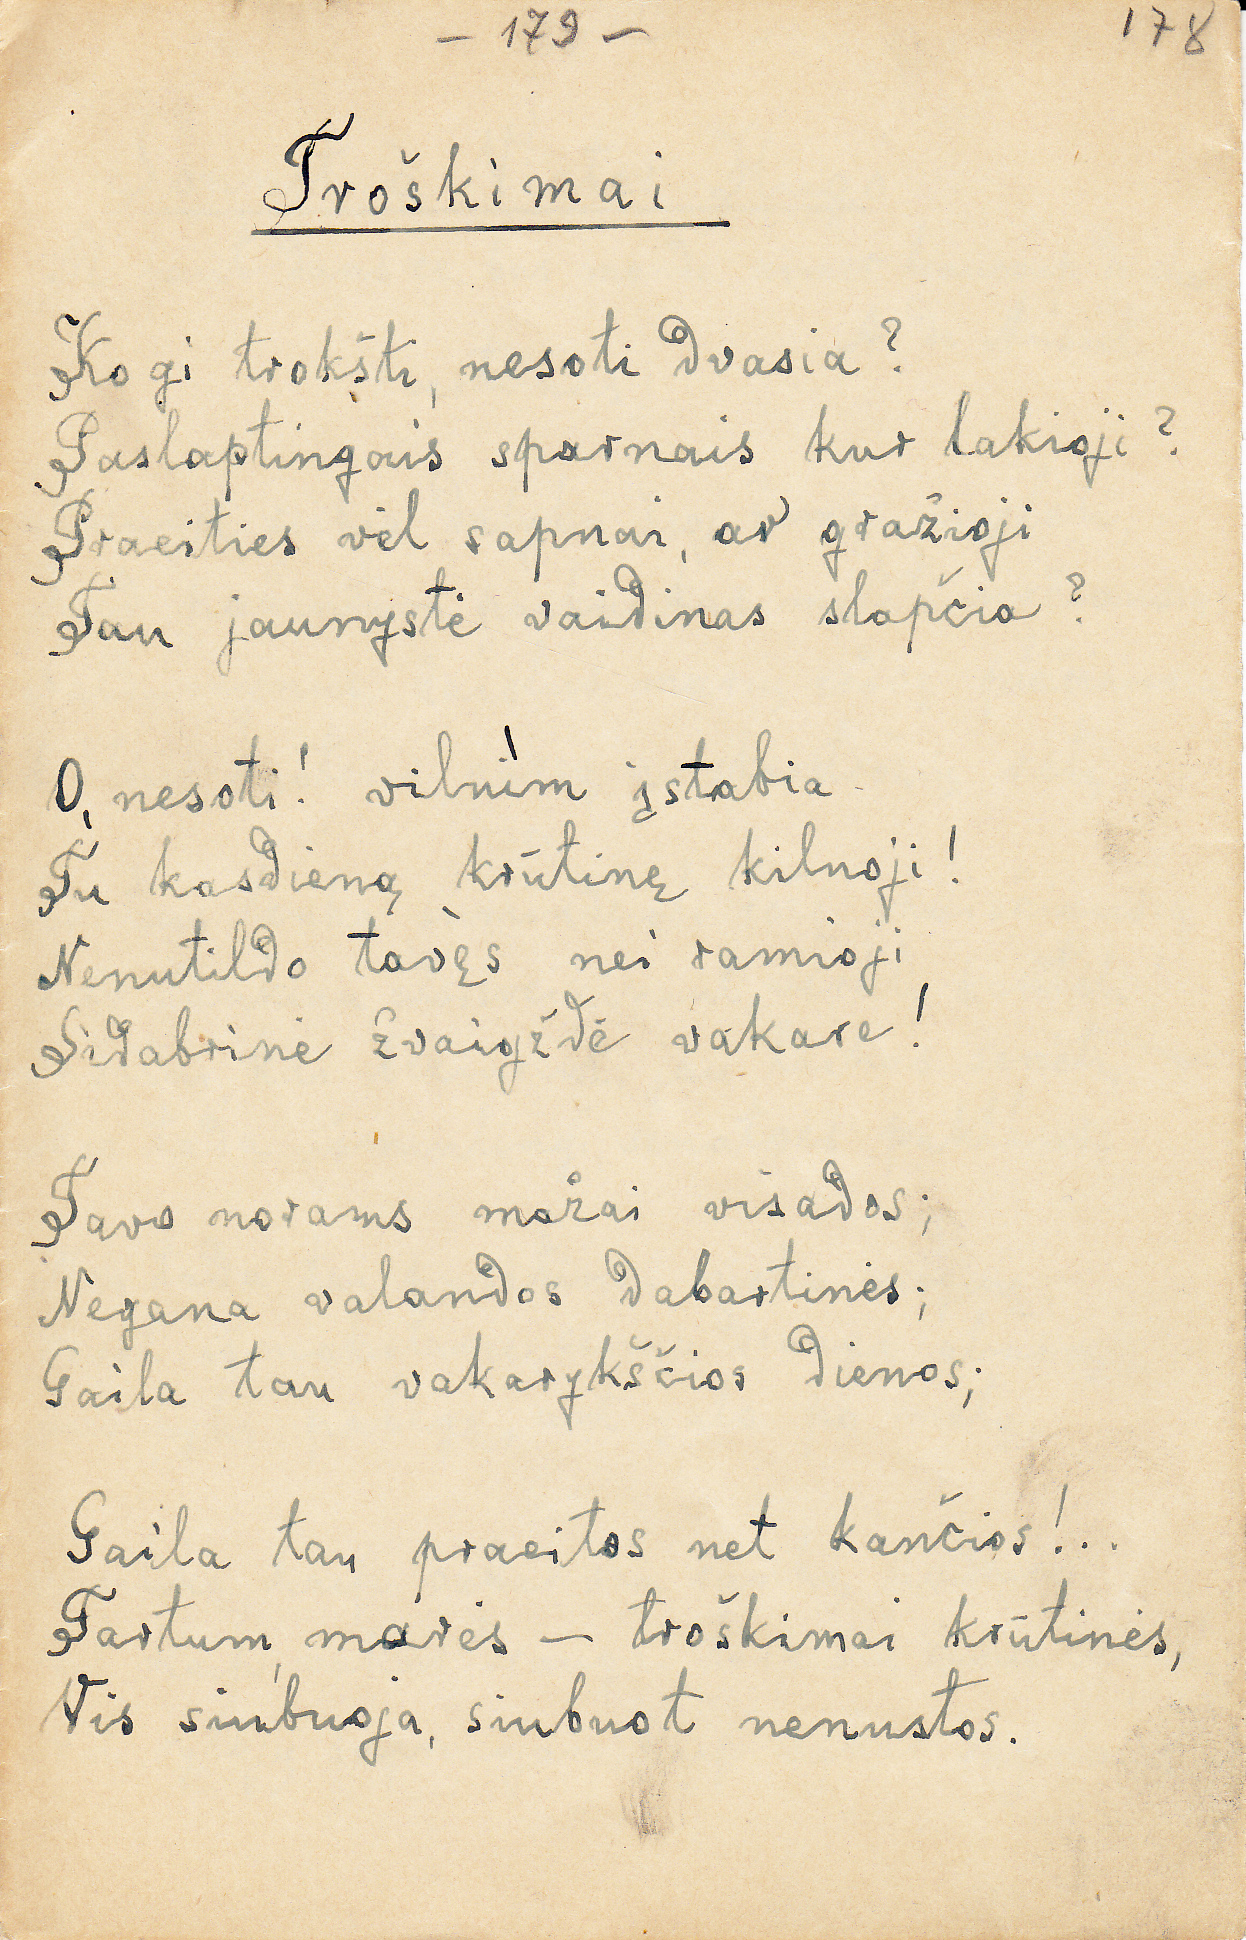 – 179 –
178
Troškimai
Ko gi trokšti, nesoti dvasia?
Paslaptingais sparnais kur lakioji?
Praeities vėl sapnai, ar gražioji
Tau jaunystė vaidinas slapčia?
O, nesoti! vilnim įstabia
Tu kasdieną krūtinę kilnoji!
Nenutildo tavęs nei ramioji
Sidabrinė žvaigždė vakare!
Tavo norams mažai visados;
Negana valandos dabartinės;
Gaila tau vakarykščios dienos;
Gaila tau praeitos net kančios!..
Tartum, marės – troškimai krūtinės,
Vis siubuoja, siubuot nenustos.